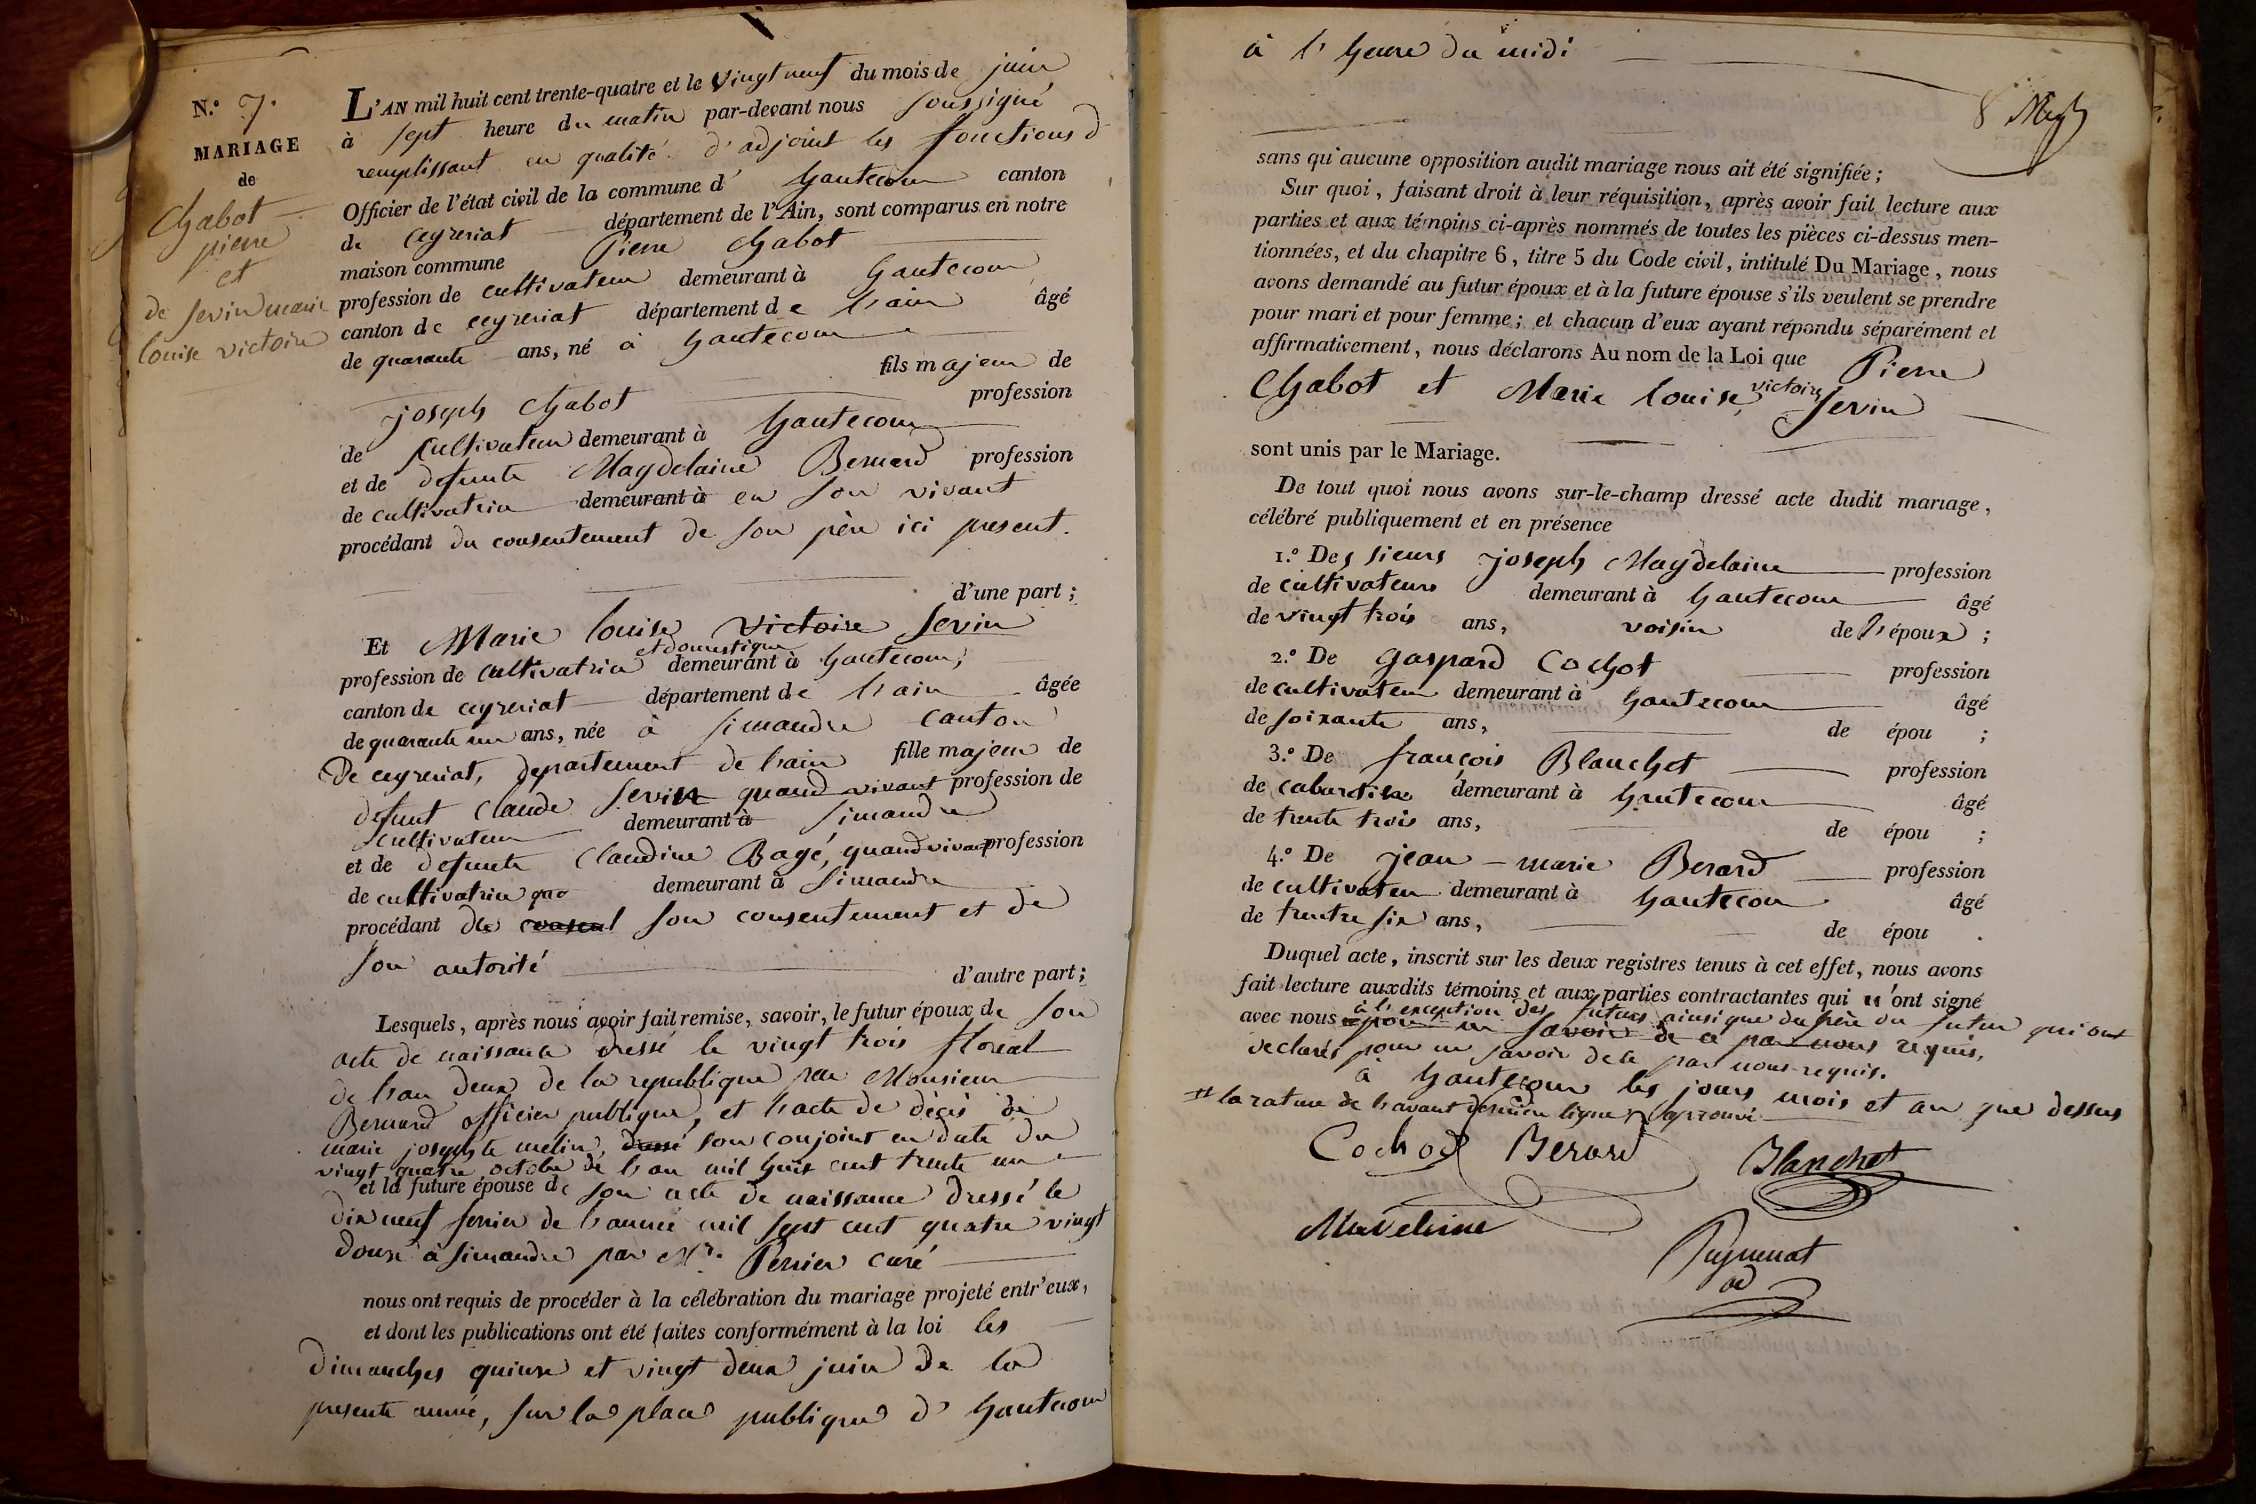 N.º 7.
MARIAGE
de
Chabot
pierre
et
de Sevin marie
louise victoire
L'AN mil huit cent trente-quatre et le vingt neuf du mois de juin
à sept heure du matin par-devant nous soussigné
remplissant en qualité d'adjoint les fonctions d
Officier de l'état civil de la commune d' hautecour canton
de ceyzeriat département de l'Ain, sont comparus en notre
maison commune Pierre Chabot
profession de cultivateur demeurant à hautecour
canton de ceyzeriat département de l'ain âgé
de quarante ans, né à hautecour
fils majeur de
joseph chabot profession
de cultivateur demeurant à hautecour
et de defunte Magdelaine Bernard profession
de cultivatrice demeurant à en son vivant
procédant du consentement de son père ici present.
d'une part ;
Et Marie louise victoire Sevin
et domestique
profession de cultivatrice demeurant à hautecour,
canton de ceyzeriat département de l'ain âgée
de quarante un ans, née à simandre canton
De ceyzeriat, departement de l'ain fille majeur de
defunt claude Sevin quand vivant profession de
cultivateur demeurant à simandre
et de defunte Claudine Bagé, quand vivant profession
de cultivatrice demeurant à Simandre
procédant de son consentement et de
son autorité
d'autre part ;
Lesquels, après nous avoir fait remise, savoir, le futur époux de son
acte de naissance dressé le vingt trois floreal
de l'an deux de la republique par Monsieur
Bernard officier publique, et l'acte de décès de
marie josephte melin, dressé son conjoint en date du
vingt quatre octobre de l'an mil huit cent trente un
et la future épouse de son acte de naissance dressé le
dix neuf fevrier de l'année mil sept cent quatre vingt
douze à simandre par Mr. Perrier curé
nous ont requis de procéder à la célébration du mariage projeté entr'eux,
et dont les publications ont été faites conformément à la loi les
dimanches quinze et vingt deux juin de la
presente année, sur la place publique d' hautecour
à l'heure du midi
8
sans qu'aucune opposition audit mariage nous ait été signifiée ;
Sur quoi, faisant droit à leur réquisition, après avoir fait lecture aux
parties et aux témoins ci-après nommés de toutes les pièces ci-dessus men-
tionnées, et du chapitre 6, titre 5 du Code civil, intitulé Du Mariage, nous
avons demandé au futur époux et à la future épouse s'ils veulent se prendre
pour mari et pour femme ; et chacun d'eux ayant répondu séparément et
affirmativement, nous déclarons Au nom de la Loi que Pierre
Chabot et Marie louise victoire Sevin
sont unis par le Mariage.
De tout quoi nous avons sur-le-champ dressé acte dudit mariage,
célébré publiquement et en présence
1.º Des sieurs joseph Magdelaine profession
de cultivateurs demeurant à hautecour âgé
de vingt trois ans, voisin de l'époux ;
2.º De gaspard Cochot profession
de cultivateur demeurant à hautecour âgé
de soixante ans, de épou ;
3.º De françois Blanchet profession
de cabaretier demeurant à hautecour âgé
de trente trois ans, de épou ;
4.º De jean-marie Berard profession
de cultivateur demeurant à hautecour âgé
de trentre six ans, de épou .
Duquel acte, inscrit sur les deux registres tenus à cet effet, nous avons
fait lecture auxdits témoins et aux parties contractantes qui n'ont signé
à l'exception des futurs ainsi que du père du futur qui ont
avec nous pour ne savoir de ce par nous requis,
declarés pour ne savoir de ce par nous requis.
à hautecour les jours mois et an que dessus
# la rature de l'avant derniere ligne approuvé
Cochod Berard Blanchet
Madelaine
Pugnenat
ad